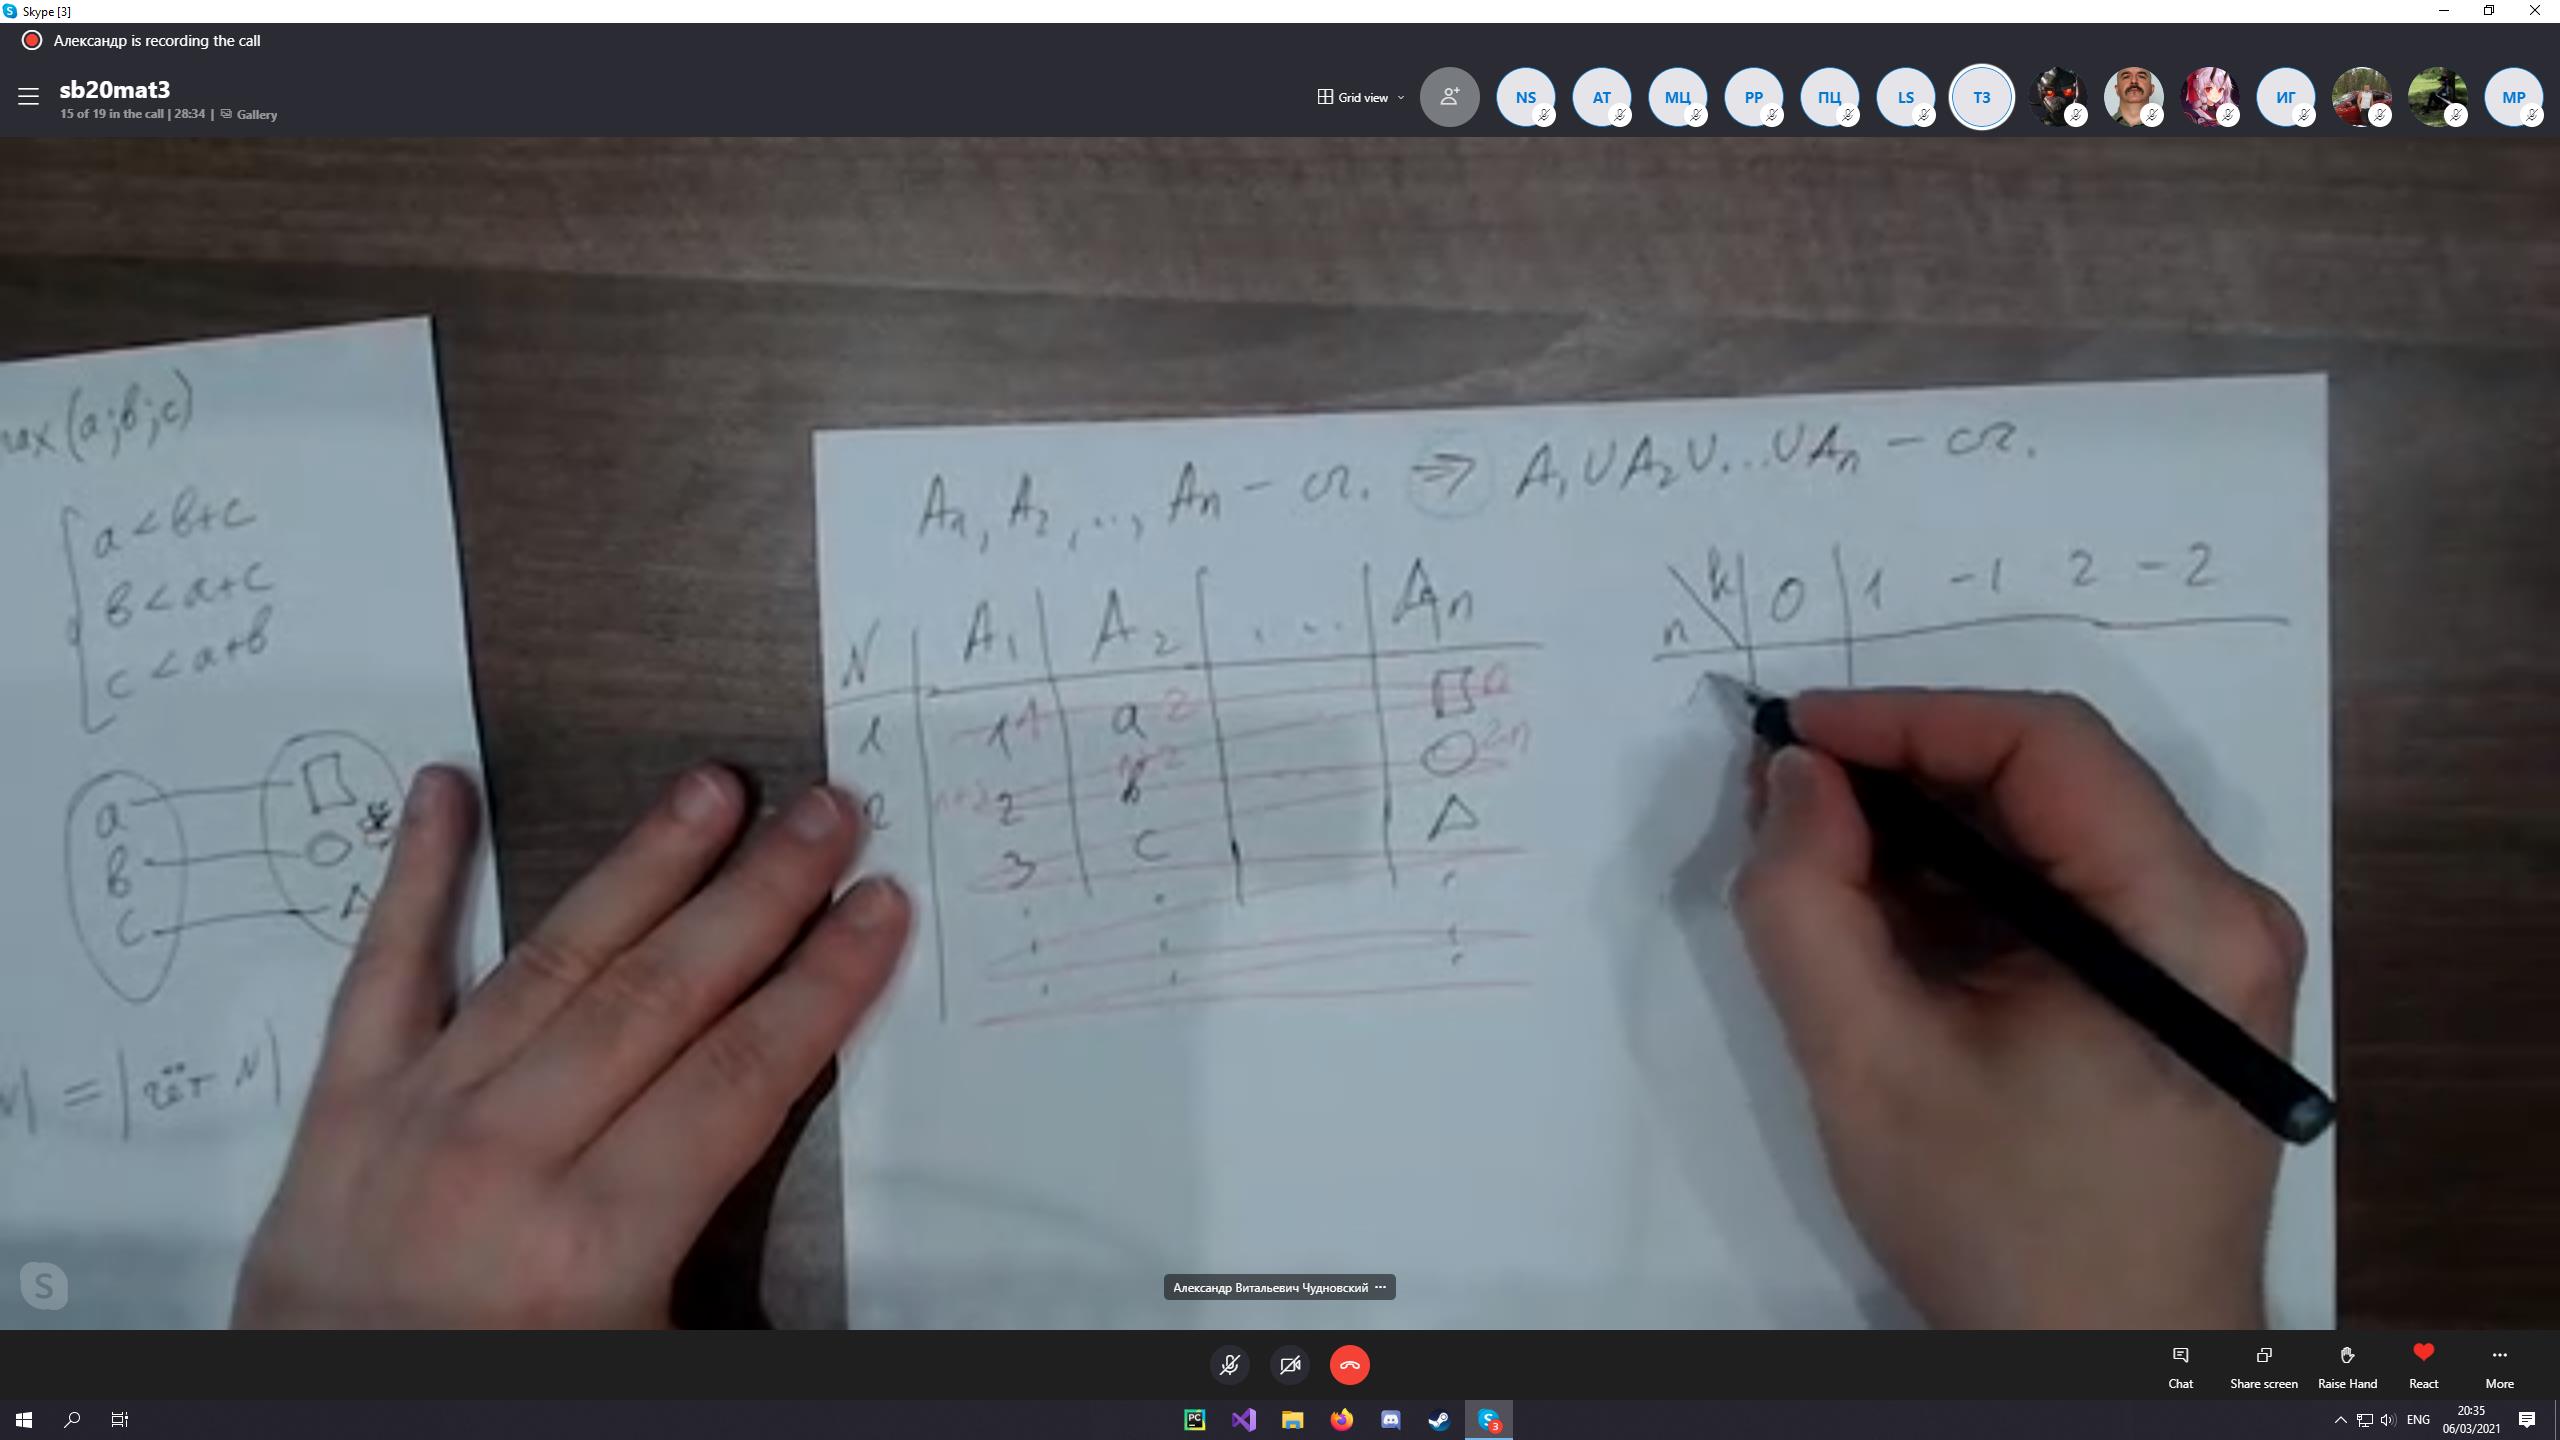 Skype [3]
Александр is recording the call
sb20mat3
15 of 19 in the call | 28:34 | Gallery
Grid view
NS
AT
МЦ
PP
ПЦ
LS
ТЗ
ИГ
MP
max(a;b;c)
a<b+c
b<a+c
c<a+b
a
b
c
= |чёт N|
A₁, A₂, ..., Aₙ – сч. ⇒ A₁∪A₂∪...∪Aₙ – сч.
N A₁ A₂ ... Aₙ
1 1 1 a 2 □ n
2 n+1 2 n+2 b ○ 2n
3 c △
n k 0 1 -1 2 -2
Александр Витальевич Чудновский ···
Chat
Share screen
Raise Hand
React
More
ENG
20:35
06/03/2021